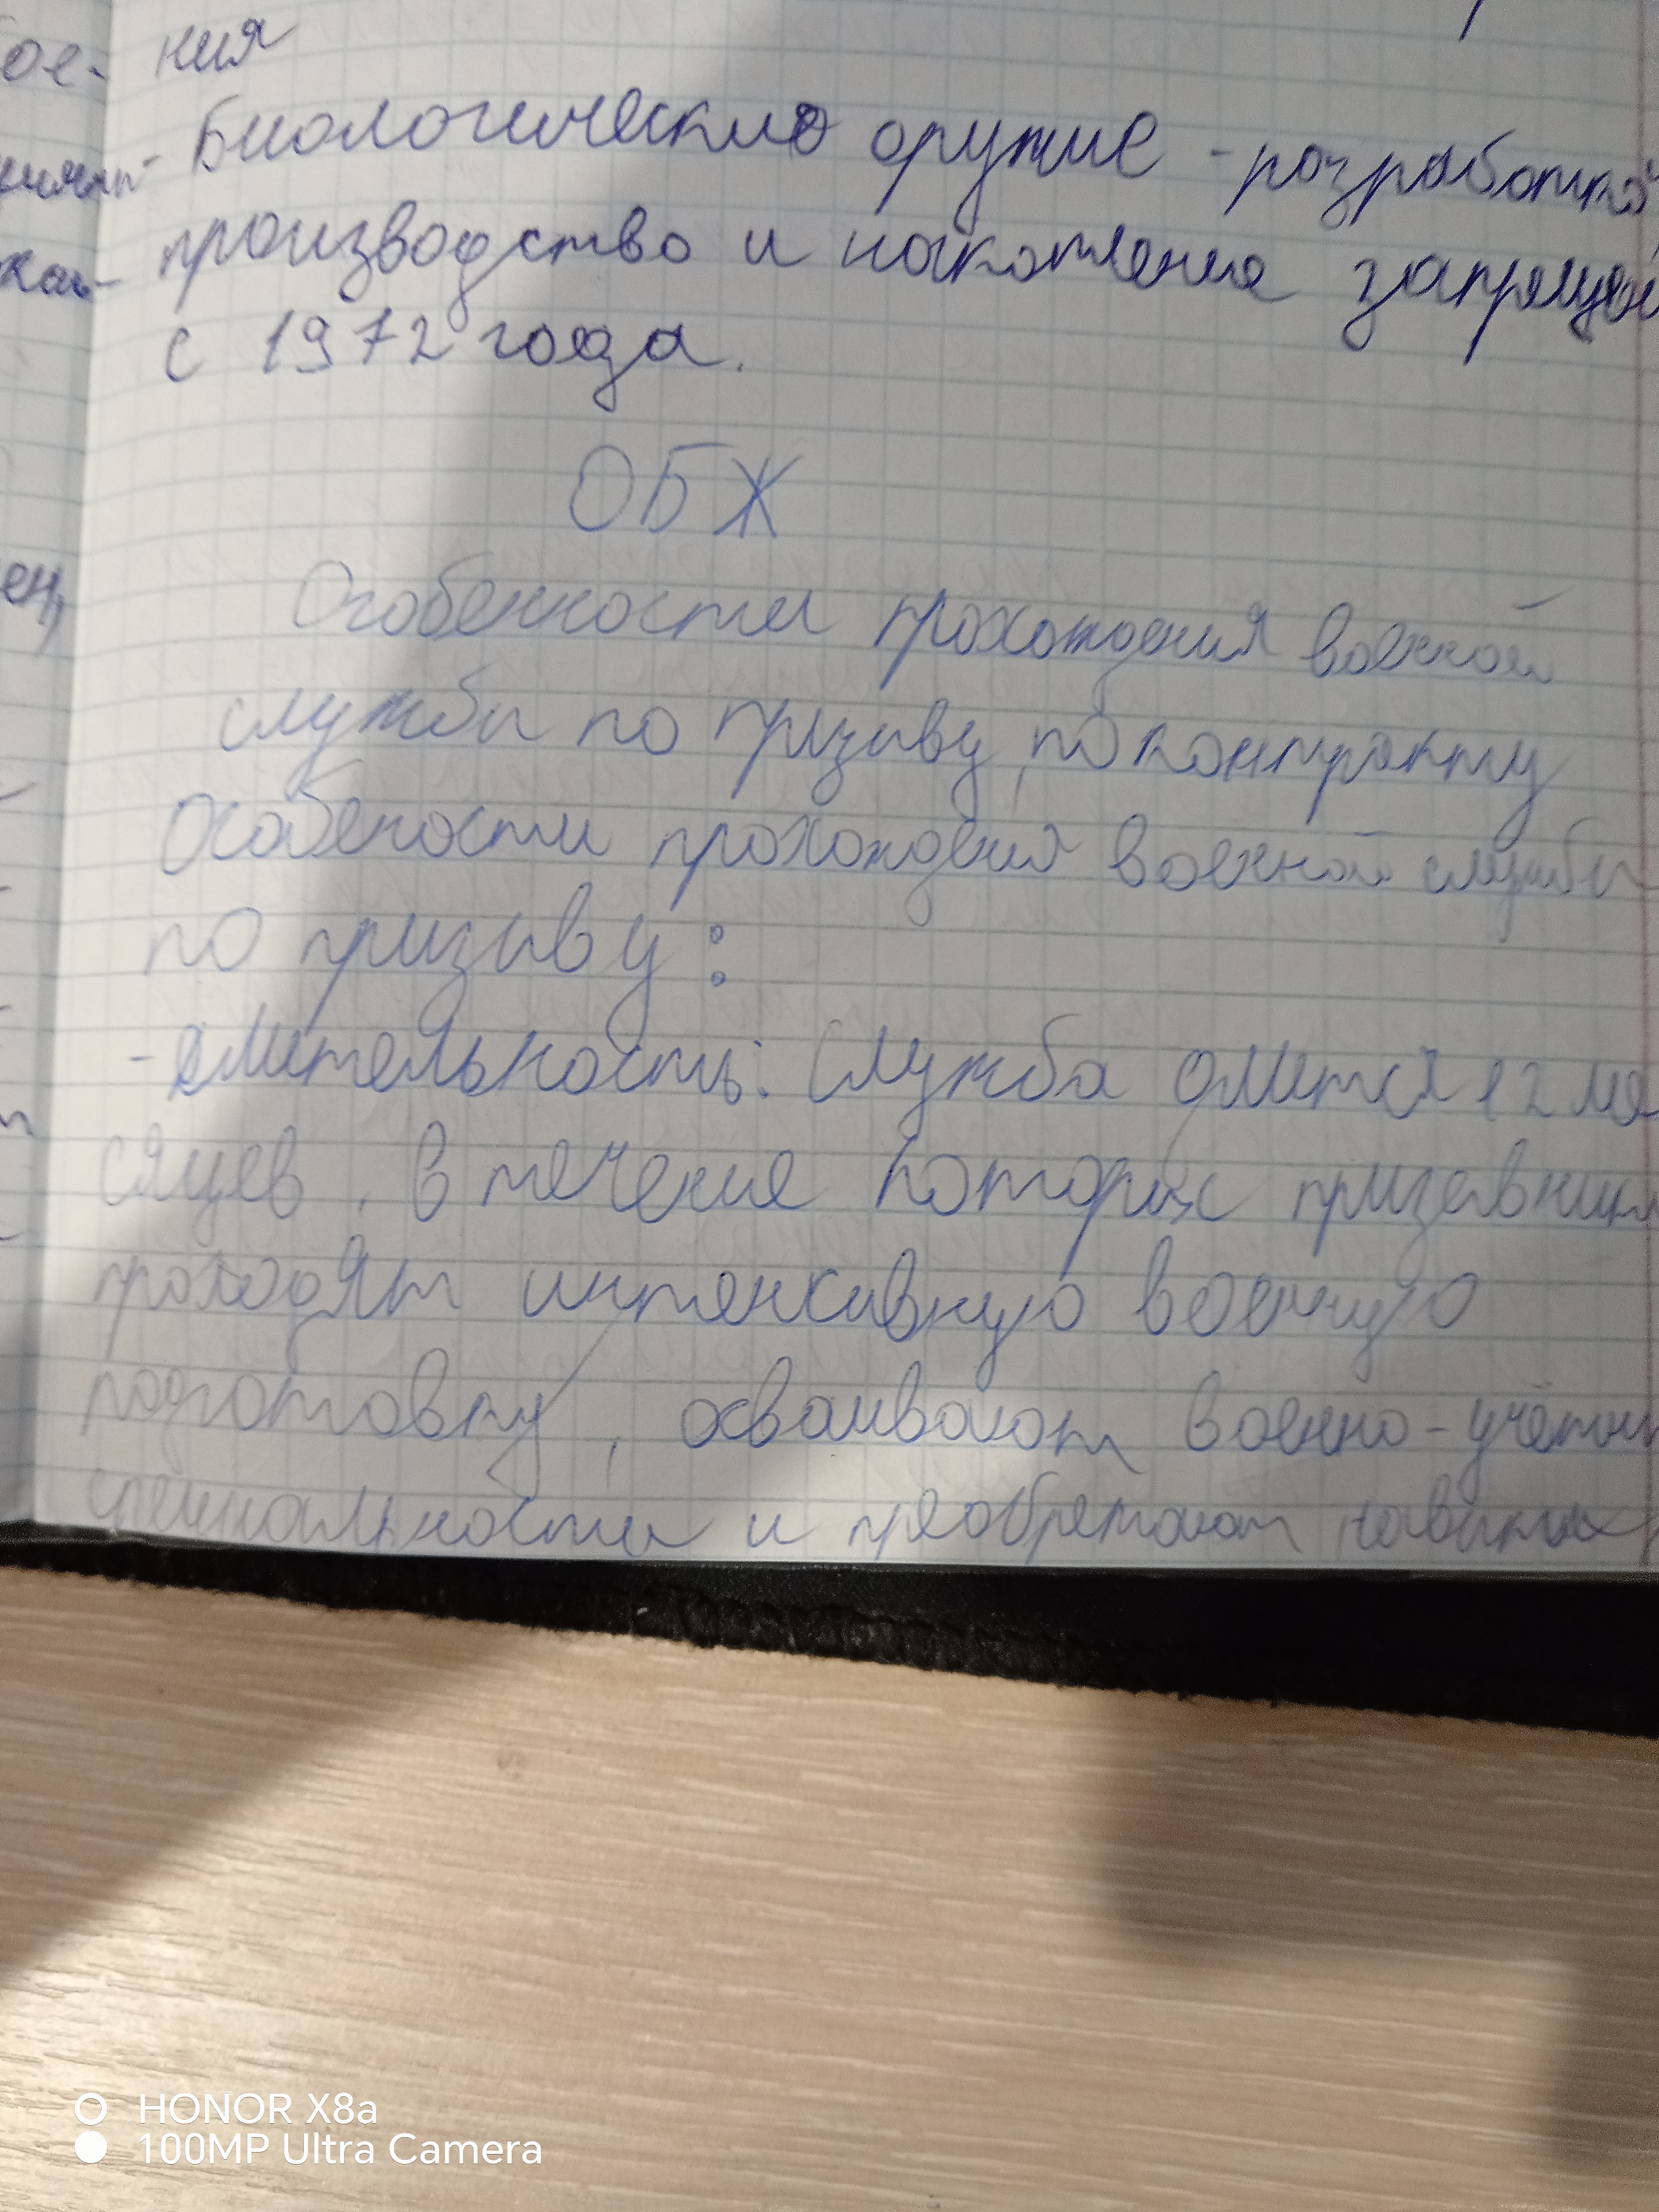 ния
Биологические оружие - разработка,
производство и накопление запрещен
с 1972 года.
ОБЖ
Особенности прохождения военной
службы по призыву, по контракту
Особености прохождения военной службы
по призыву:
- длительность: Служба длится 12 ме
сяцев, в течение которых призывники
проходят интенсивную военную
подготовку, осваивают военно-учётные
специальности и преобретают навыки
HONOR X8a
100MP Ultra Camera